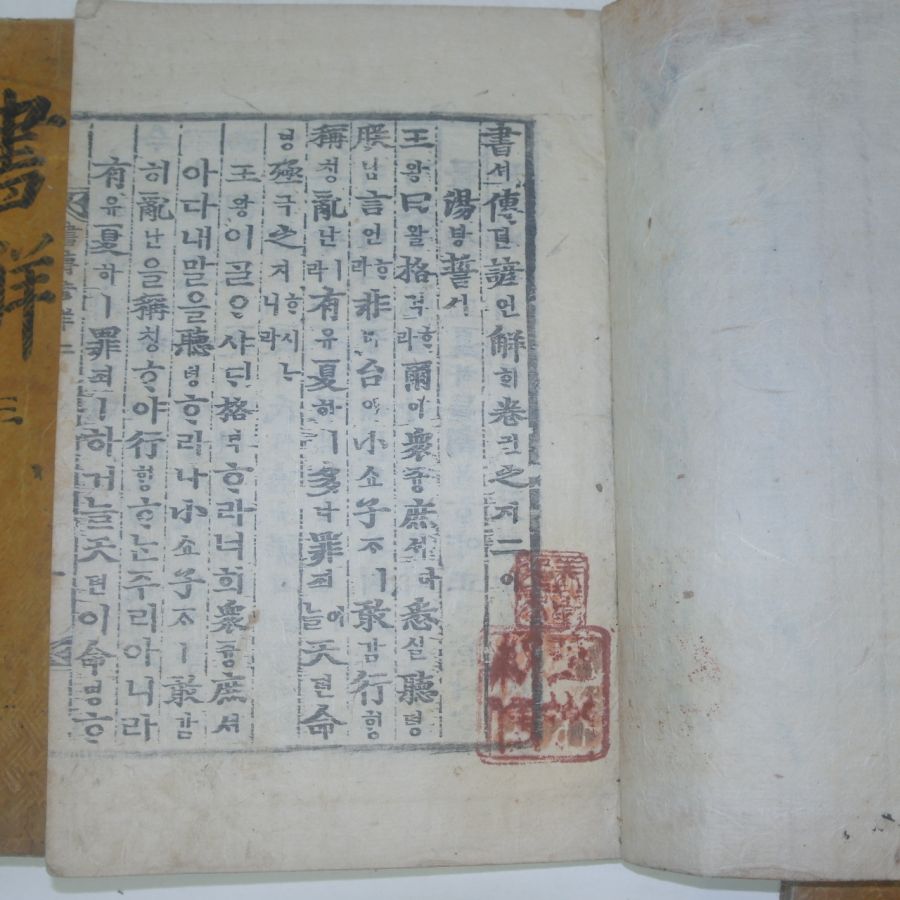 書셔傳뎐諺언解ᄒᆡ卷권之지二이
湯탕誓셔
王왕曰왈格격ᄒᆞ라爾이衆즁庶셔아悉실聽텽
朕짐言언ᄒᆞ라非비台이小쇼子ᄌᆞㅣ敢감行ᄒᆡᆼ
稱칭亂난이라有유夏하ㅣ多다罪죄어늘天텬命
명殛극之지ᄒᆞ시ᄂᆞ니라
王왕이ᄀᆞᆯᄋᆞ샤ᄃᆡ格격ᄒᆞ라너희衆즁庶셔
아다내말을聽텽ᄒᆞ라나小쇼子ᄌᆞㅣ敢감
히亂난을稱칭ᄒᆞ야行ᄒᆡᆼᄒᆞᄂᆞᆫ주리아니라
有유夏하ㅣ罪죄ㅣ하거늘天텬이命명ᄒᆞ
書傳諺解二
書解三